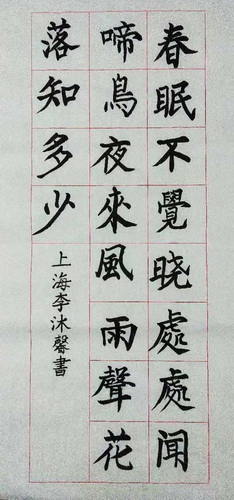 春眠不覺晓處處闻
啼鳥夜來風雨聲花
落知多少
上海李沐馨書